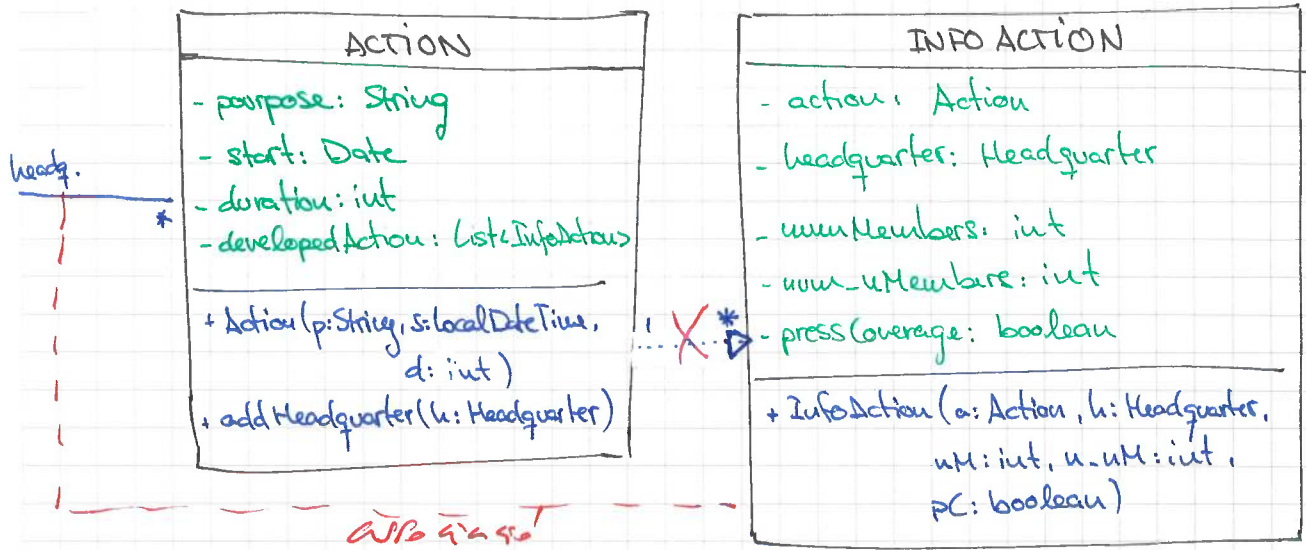 ACTION
- pourpose: String
- start: Date
- duration: int
- developedAction: List<InfoAction>
+ Action(p:String, s:LocalDateTime,
d: int)
+ addHeadquarter(h: Headquarter)
headq.
*
1
*
INFO ACTION
- action: Action
- headquarter: Headquarter
- numMembers: int
- num_nMembers: int
- pressCoverage: boolean
+ InfoAction (a: Action, h: Headquarter,
nM: int, n_nM: int,
pC: boolean)